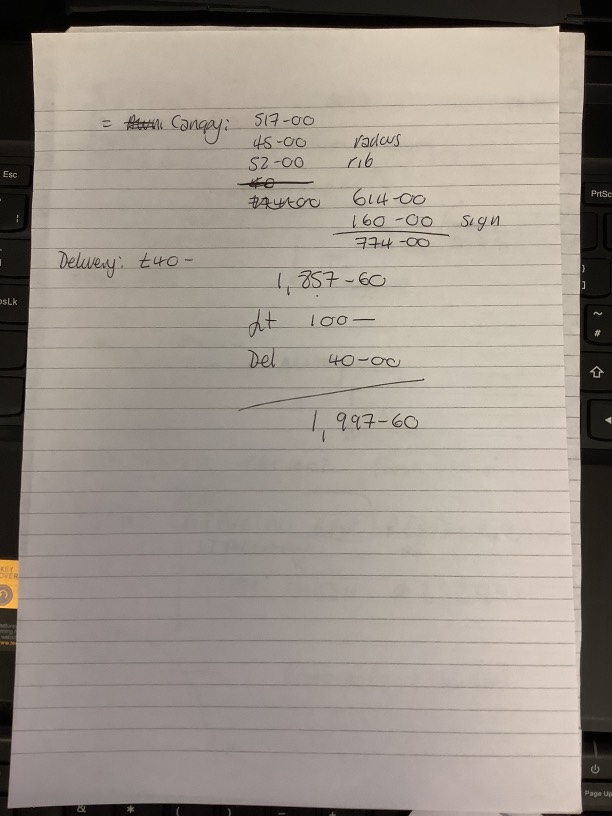 = Canopy: 517-00
45-00 radius
52-00 rib
40
774-00 614-00
160-00 sign
774-00
Delivery: £40-
1,857-60
100—
Del 40-00
1,997-60
Esc
PrtSc
~
#
Page Up
&
*
(
)